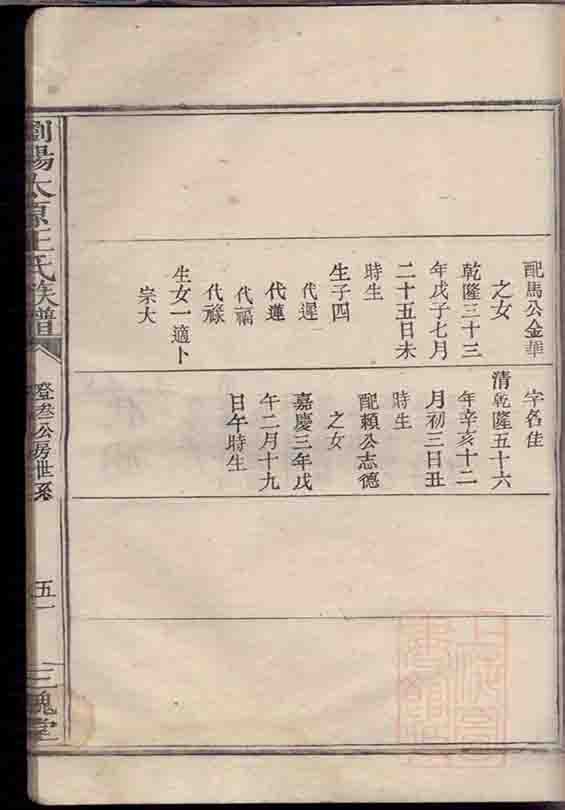 配馬公金華
之女
乾隆三十三
年戊子七月
二十五日未
時生
生子四
代遲
代蓮
代福
代祿
生女一適卜
宗大
字名佳
清乾隆五十六
年辛亥十二
月初三日丑
時生
配賴公志德
之女
嘉慶三年戊
午二月十九
日午時生
瀏陽太原王氏族譜
登叁公房世系
五一
三槐堂